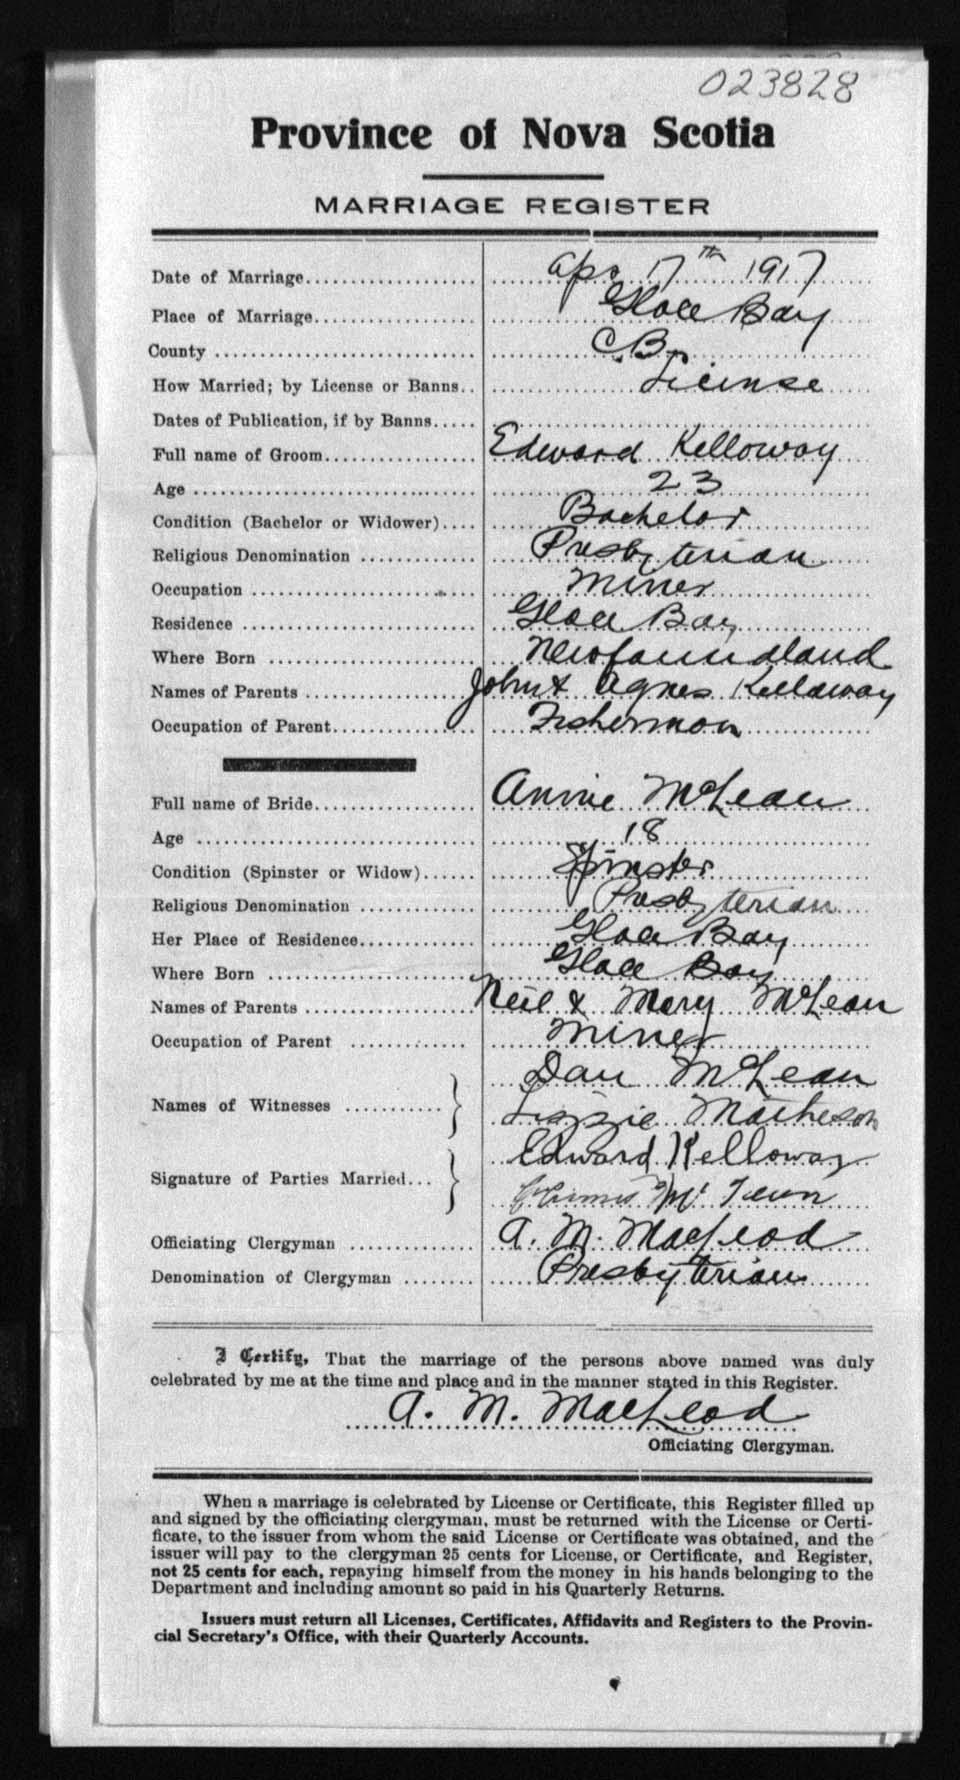 023828
Province of Nova Scotia
MARRIAGE REGISTER
Date of Marriage.................... Apr. 17th 1917
Place of Marriage................... Glace Bay
County .............................. C.B.
How Married; by License or Banns.. License
Dates of Publication, if by Banns.....
Full name of Groom.................. Edward Kelloway
Age ................................. 23
Condition (Bachelor or Widower).... Bachelor
Religious Denomination ............. Presbyterian
Occupation .......................... Miner
Residence ........................... Glace Bay
Where Born ........................ Newfoundland
Names of Parents .................... John & Agnes Kelloway
Occupation of Parent................. Fisherman
Full name of Bride................... Annie McLean
Age ................................. 18
Condition (Spinster or Widow)...... Spinster
Religious Denomination ............. Presbyterian
Her Place of Residence.............. Glace Bay
Where Born ........................ Glace Bay
Names of Parents .................... Neil & Mary McLean
Occupation of Parent ............. Miner
Dan McLean
Names of Witnesses ...........
Lizzie Matheson
Edward Kelloway
Signature of Parties Married...
Mc Lean
Officiating Clergyman .............. A. M. MacLeod
Denomination of Clergyman ........ Presbyterian
I Certify, That the marriage of the persons above named was duly
celebrated by me at the time and place and in the manner stated in this Register.
A. M. MacLeod
Officiating Clergyman.
When a marriage is celebrated by License or Certificate, this Register filled up
and signed by the officiating clergyman, must be returned with the License or Certi-
ficate, to the issuer from whom the said License or Certificate was obtained, and the
issuer will pay to the clergyman 25 cents for License, or Certificate, and Register,
not 25 cents for each, repaying himself from the money in his hands belonging to the
Department and including amount so paid in his Quarterly Returns.
Issuers must return all Licenses, Certificates, Affidavits and Registers to the Provin-
cial Secretary's Office, with their Quarterly Accounts.